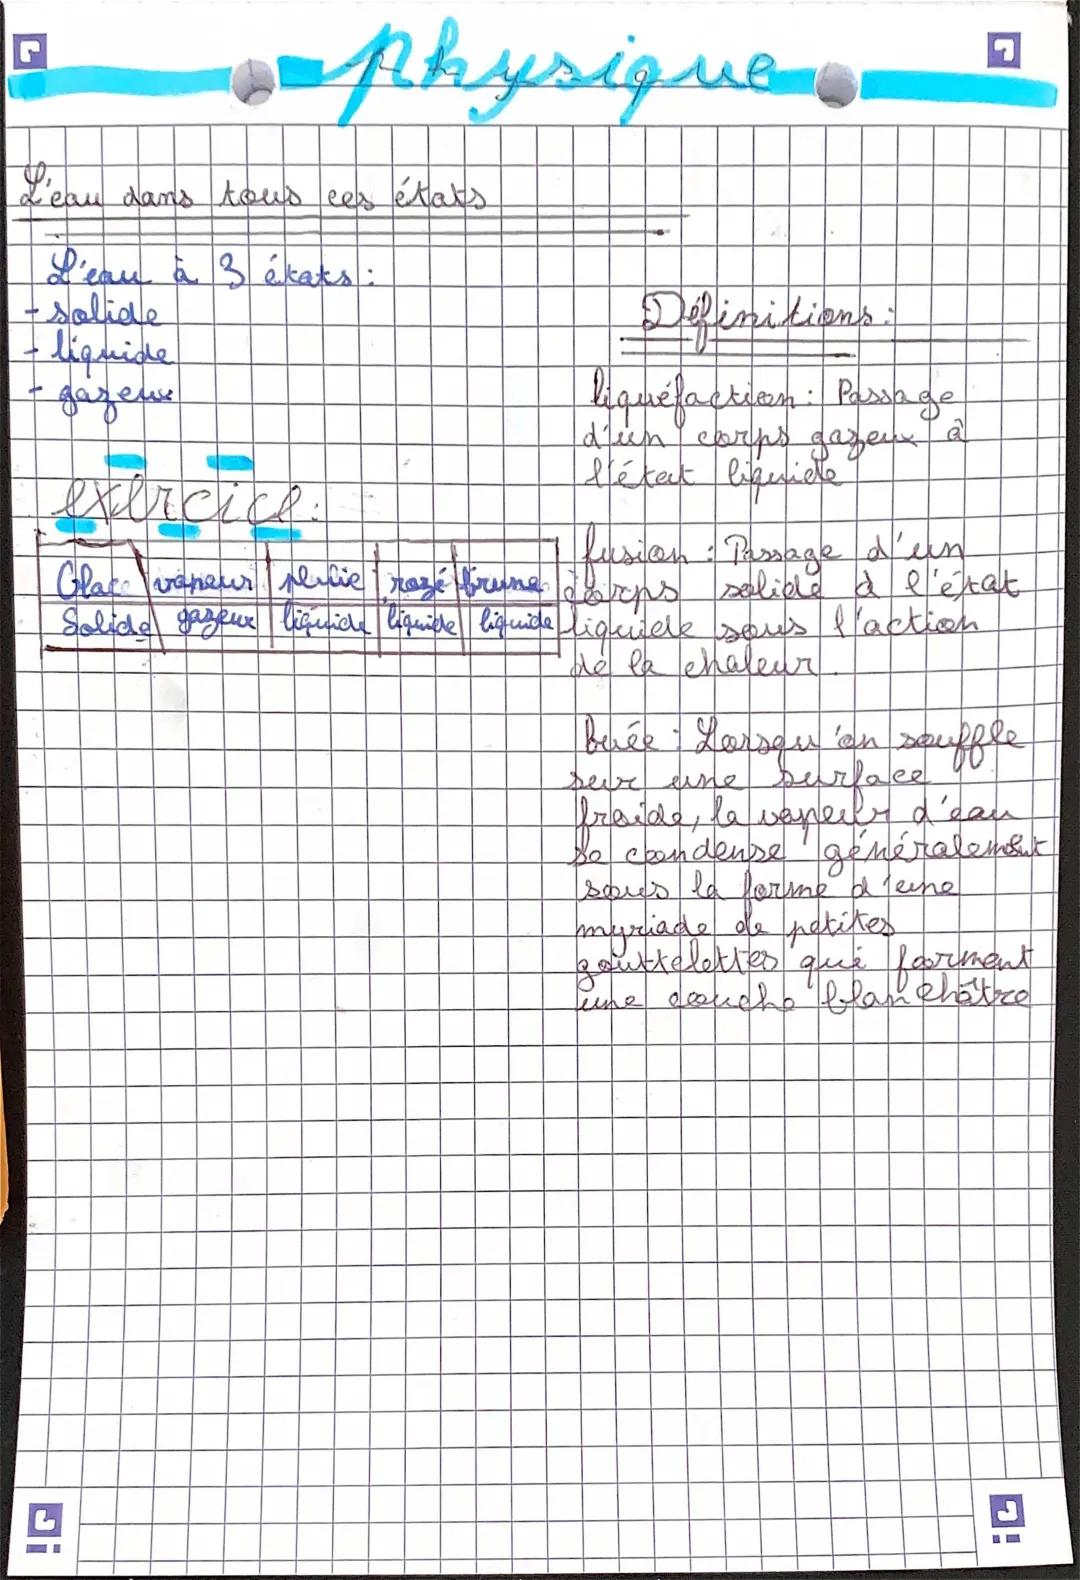 physique
L'eau dans tous ces états
L'eau à 3 états :
- solide
- liquide
- gazeux
exercice :
Glace vapeur pluie rozé brume
Solide gazeux liquide liquide liquide
Définitions :
liquéfaction : Passage
d'un corps gazeux à
l'état liquide
fusion : Passage d'un
corps solide à l'état
liquide sous l'action
de la chaleur.
buée : Lorsqu'on souffle
sur une surface
froide, la vapeur d'eau
se condense généralement
sous la forme d'une
myriade de petites
gouttelettes qui forment
une couche blanchâtre